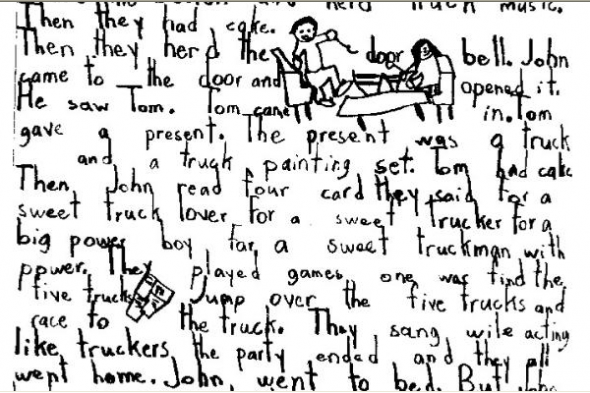 and herd truck music.
Then they had cake.
Then they herd the door bell. John
came to the door and opened it.
He saw Tom. Tom came in. Tom
gave a present. The present was a truck
and a truck painting set. Tom had cake
Then John read four card they said for a
sweet truck lover for a sweet trucker for a
big power boy for a sweet truckman with
power. They played games one was find the
five trucks Jump over the five trucks and
race to the truck. They sang wile acting
like truckers the party ended and they all
went home. John went to bed. But